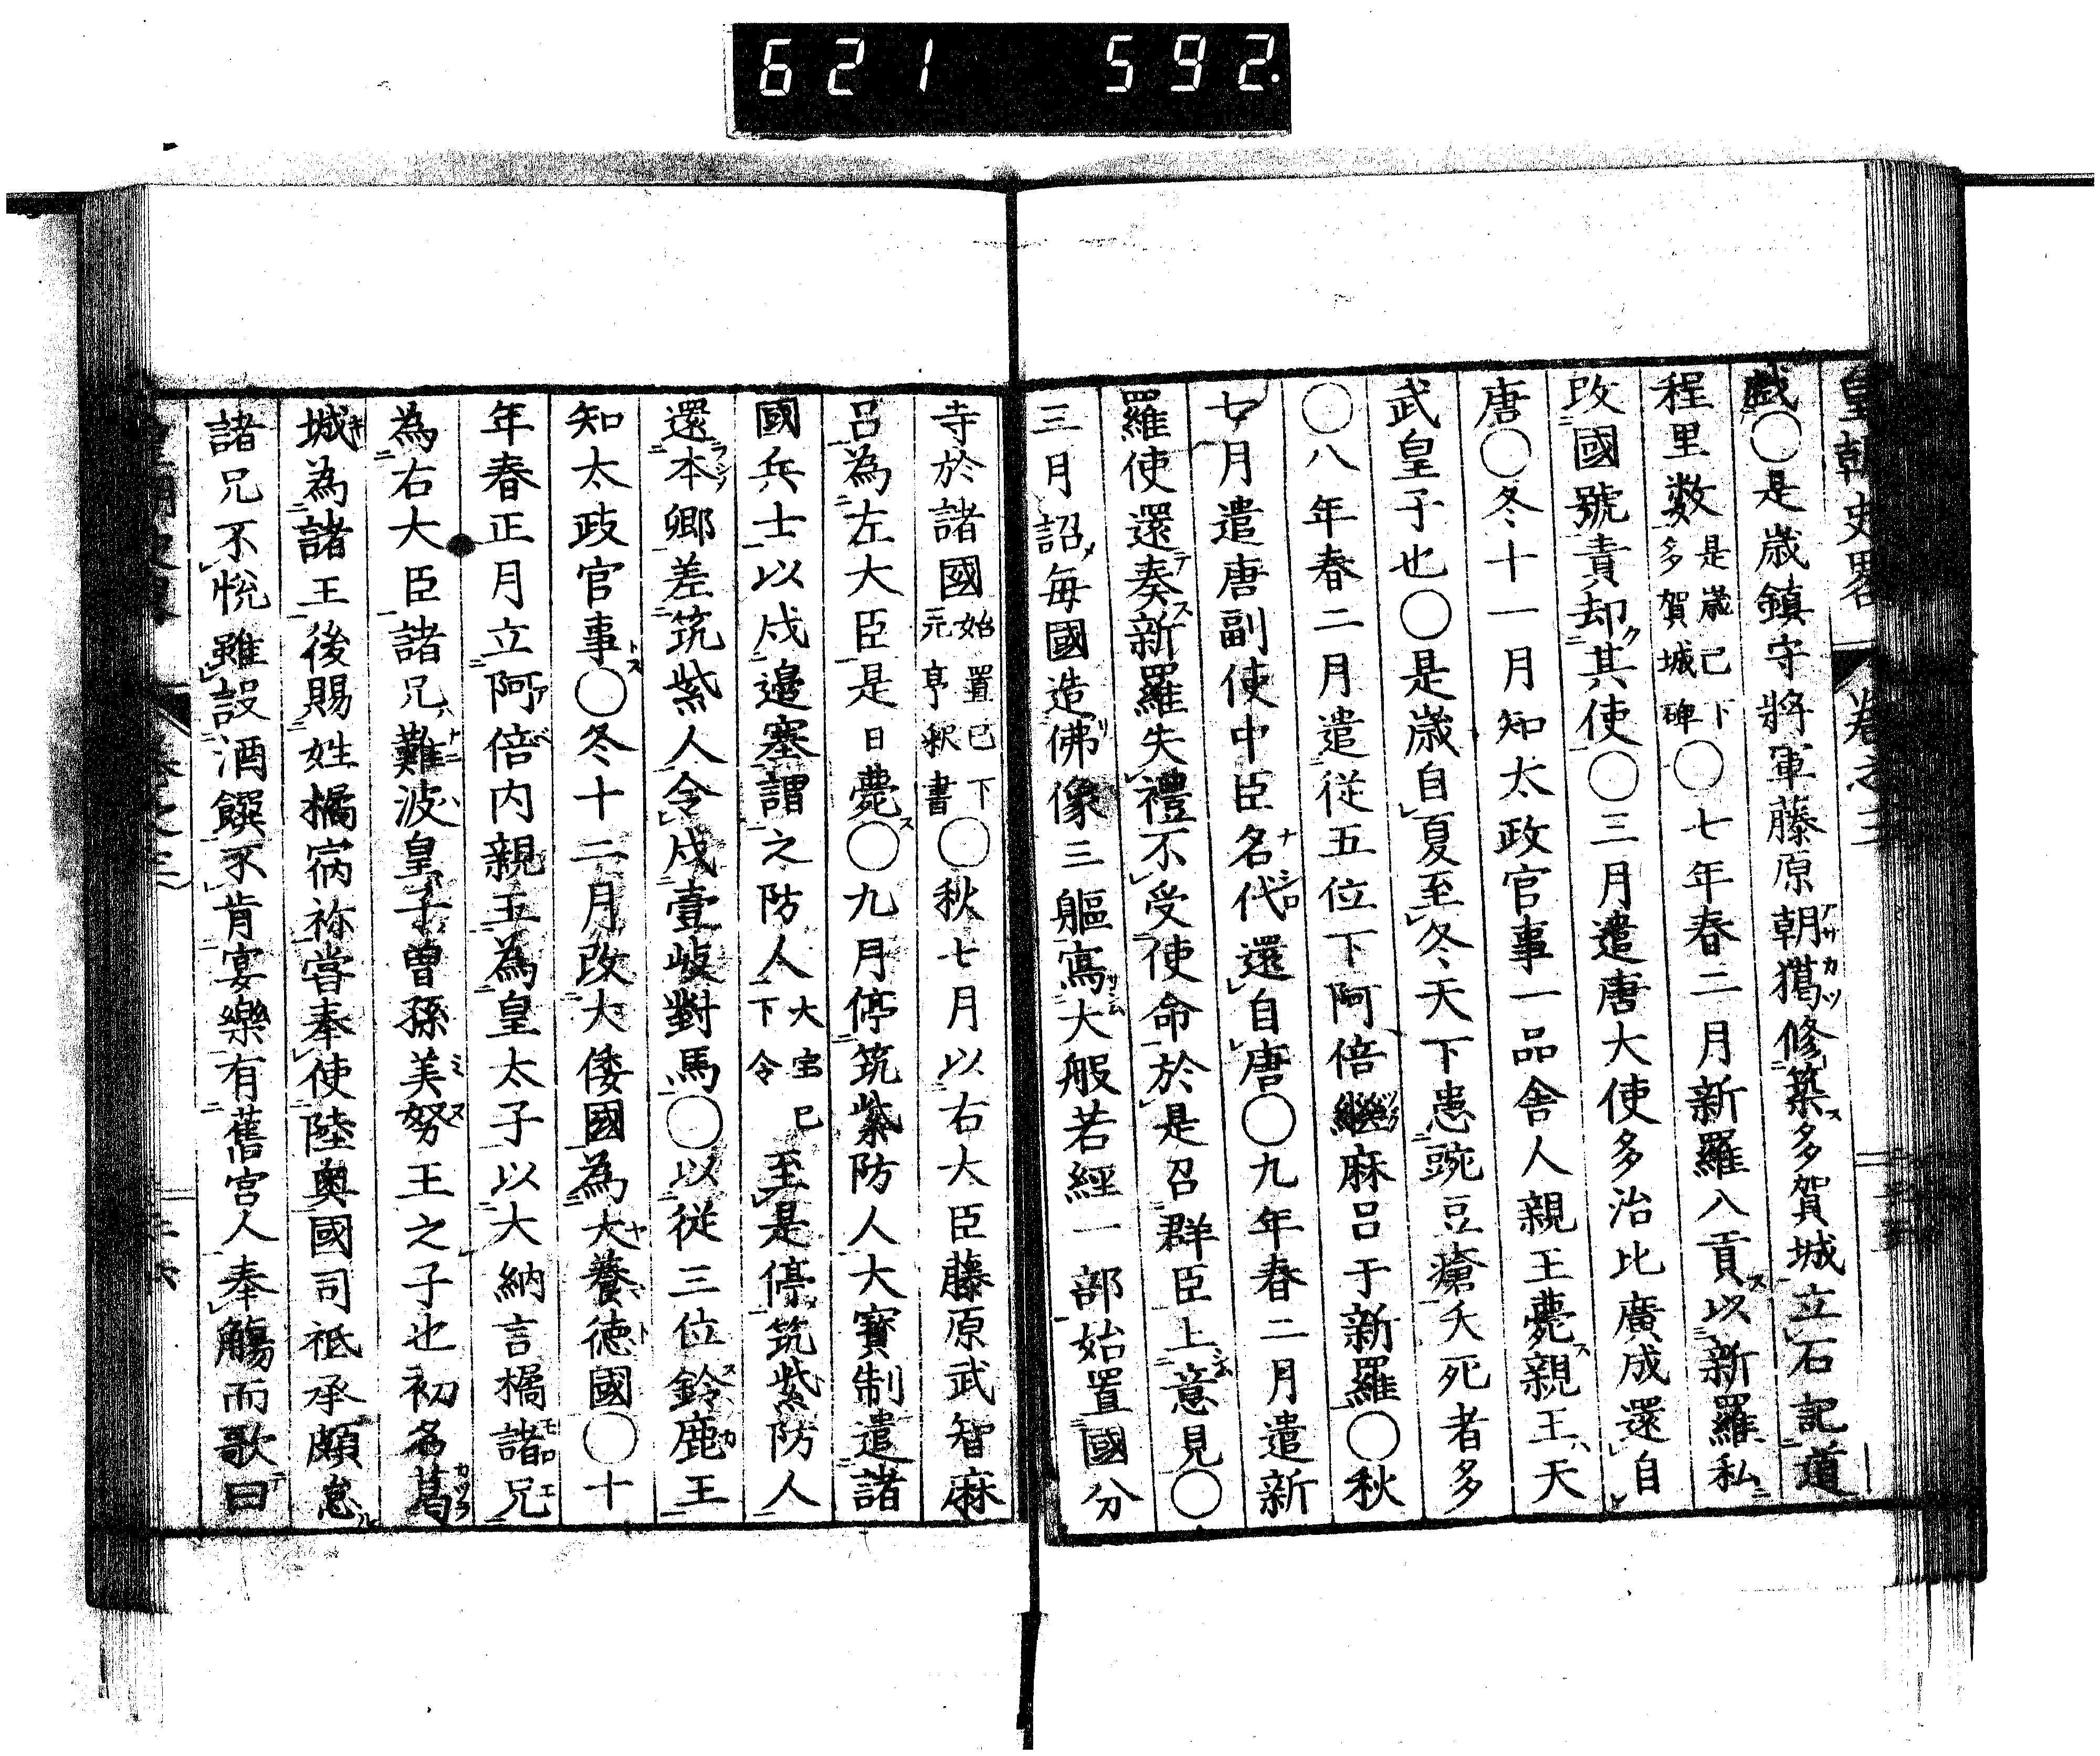 621 592.
皇朝史畧 卷之三
戯〇是歳鎮守將軍藤原朝獦修築多賀城立石記道
程里数是歳已下多賀城碑〇七年春二月新羅入貢以新羅私
改國號責却其使〇三月遣唐大使多治比廣成還自
唐〇冬十一月知太政官事一品舎人親王薨親王天
武皇子也〇是歳自夏至冬天下患豌豆瘡夭死者多
〇八年春二月遣従五位下阿倍繼麻呂于新羅〇秋
七月遣唐副使中臣名代還自唐〇九年春二月遣新
羅使還奏新羅失禮不受使命於是召群臣上意見〇
三月詔毎國造佛像三軀寫大般若經一部始置國分
寺於諸國始置已下元亨釈書〇秋七月以右大臣藤原武智麻
呂為左大臣是日薨〇九月停筑紫防人大寳制遣諸
國兵士以戍邉塞謂之防人大宝已下令至是停筑紫防人
還本郷差筑紫人令戍壹岐對馬〇以従三位鈴鹿王
知太政官事〇冬十二月改大倭國為大養徳國〇十
年春正月立阿倍内親王為皇太子以大納言橘諸兄
為右大臣諸兄難波皇子曽孫美努王之子也初名葛
城為諸王後賜姓橘宿祢嘗奉使陸奥國司祇承頗怠
諸兄不悦雖設酒饌不肯宴樂有舊宮人奉觴而歌曰